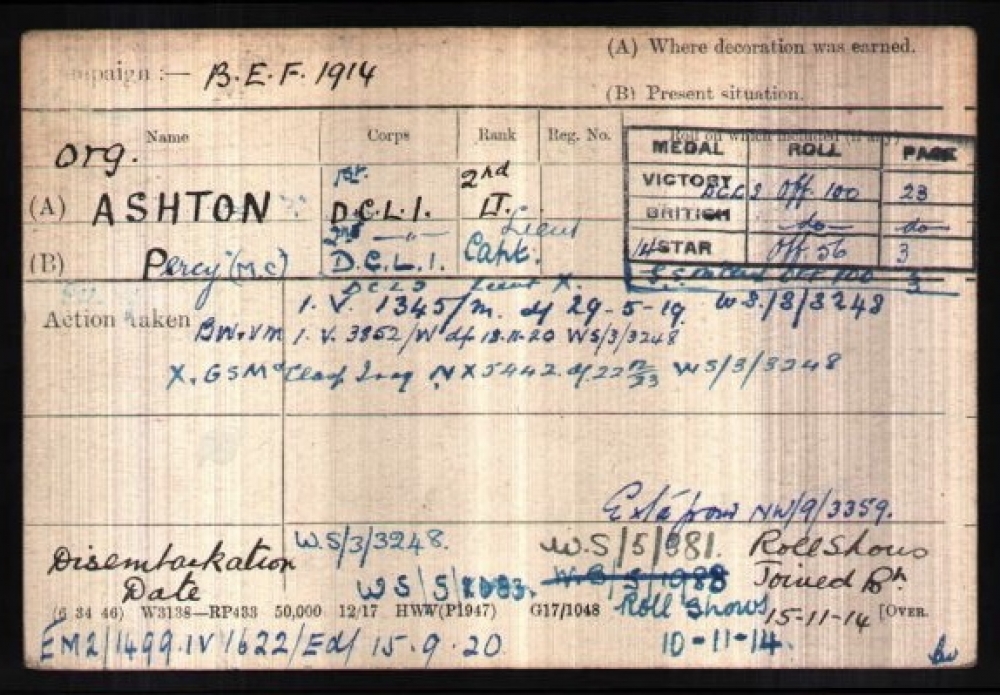 (A) Where decoration was earned.
mpaign :— B.E.F. 1914
(B) Present situation.
Name Corps Rank Reg. No. Roll on which included (if any)
MEDAL ROLL PAGE
org. 1st. 2nd
VICTORY DCLI Off. 100 23
(A) ASHTON D.C.L.I. LT.
BRITISH —do— —do—
2nd —"— Lieut
14 STAR Off. 56 3
(B) Percy (M.C) D.C.L.I. Capt.
Off 100 3
DCLI Lieut X.
Action taken 1. V. 1345/M. df 29-5-19. WS/3/3248
BW.VM 1. V. 3852/W df 18.11.20 WS/3/3248
X. GSM & Clasp Iraq NX5442 df 22 12/23 WS/3/3248
NW/9/3359.
Disembarkation W.S/3/3248. W.S/5/881. Roll Shows
Date WS/5/ W.S/5/1088 Joined Bn
(6 34 46) W3138—RP433 50,000 12/17 HWW(P1947) G17/1048 Roll Shows 15-11-14 [OVER.
EM2/1499.IV/1622/Ed/ 15.9.20 10-11-14.